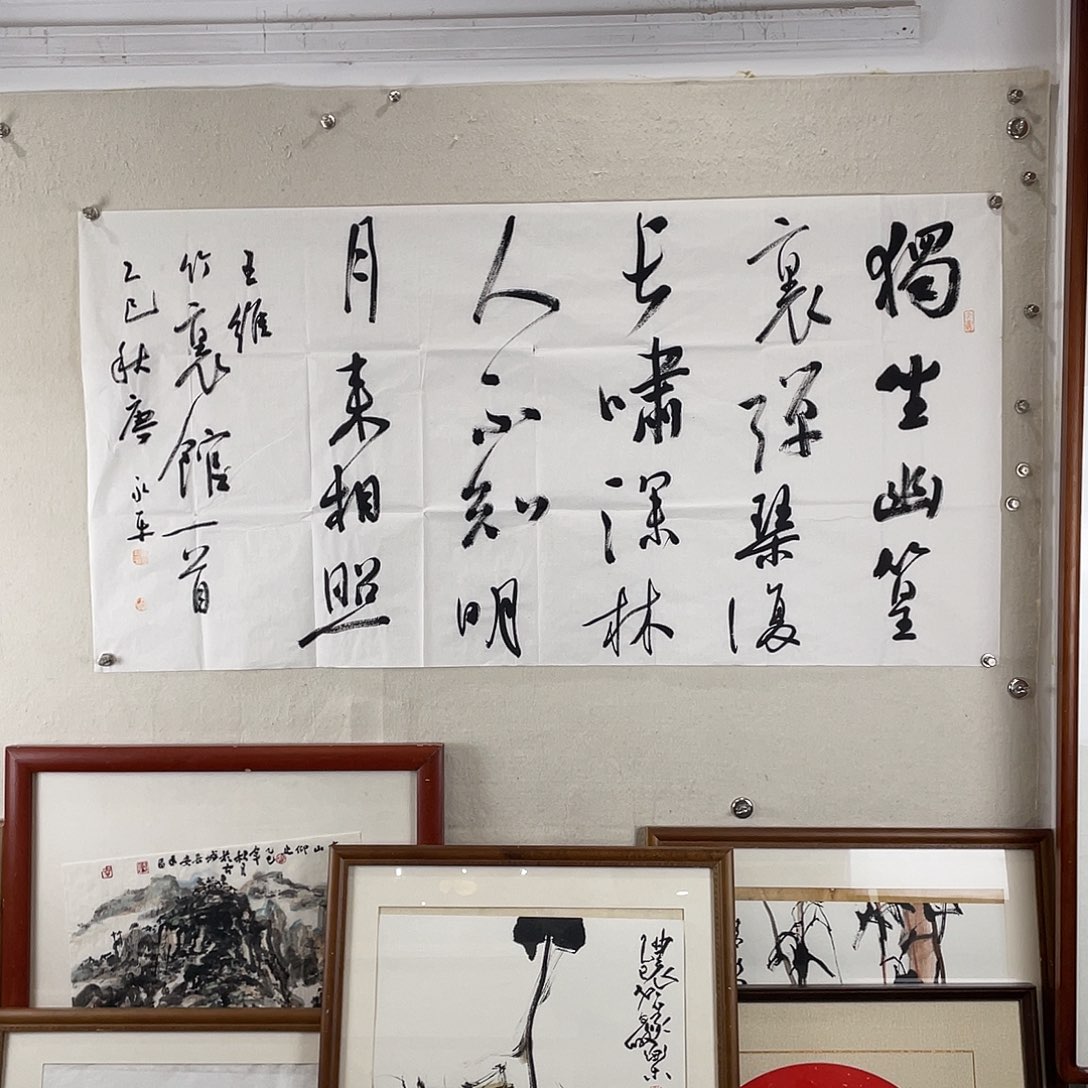 獨坐幽篁
裏彈琴復
長嘯深林
人不知明
月来相照
王維
竹裏館一首
乙巳秋唐永平